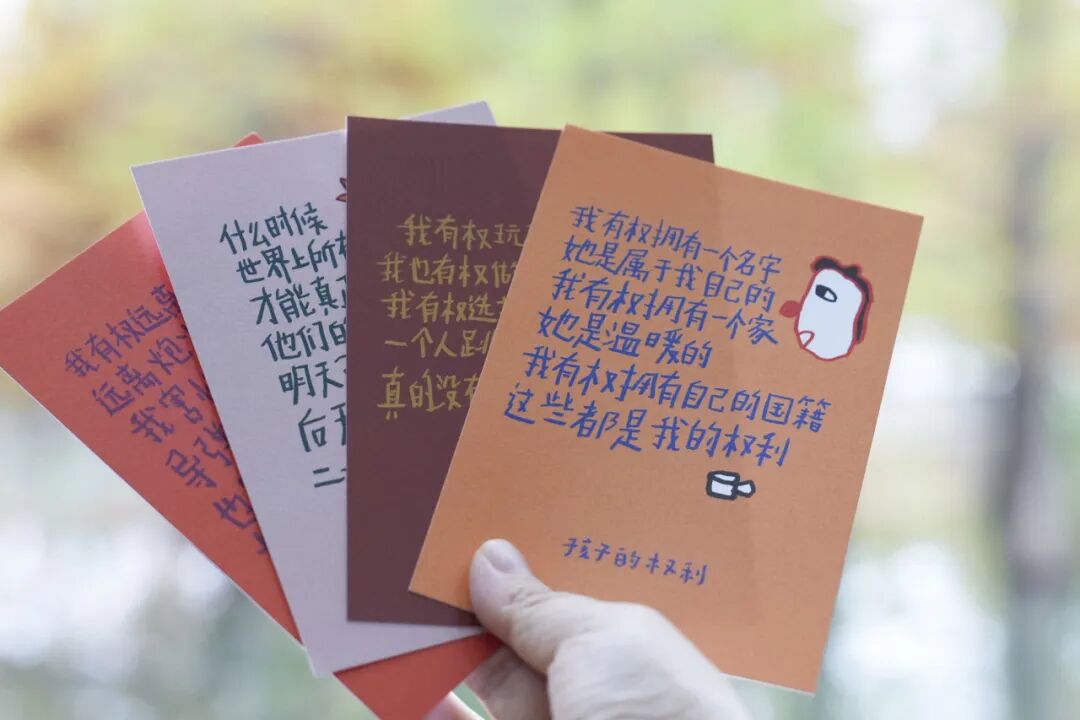 我有权远
远离炮
我害
导弹
也
什么时候
世界上所
才能真
他们的
明天
后
二
我有权玩
我也有权做
我有权选
一个人趴
真的没有
我有权拥有一个名字
她是属于我自己的
我有权拥有一个家
她是温暖的
我有权拥有自己的国籍
这些都是我的权利
孩子的权利